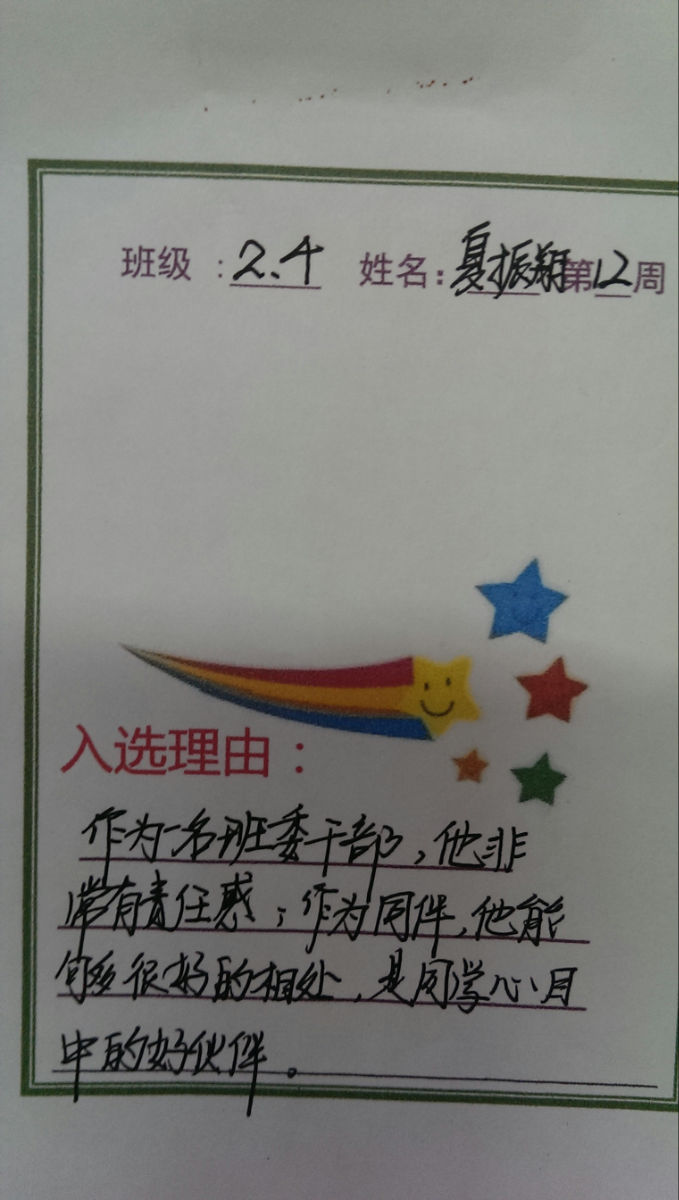 班级：2.4 姓名：夏振翔第12周
入选理由：
作为一名班委干部，他非
常有责任感；作为同伴，他能
够很好的相处，是同学心目
中的好伙伴。